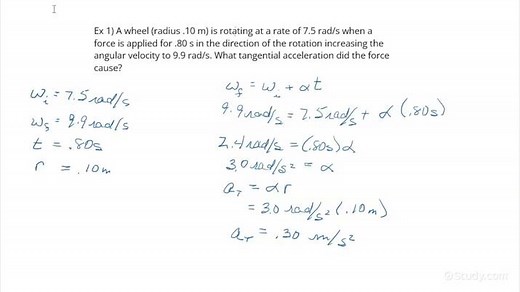 Ex 1) A wheel (radius .10 m) is rotating at a rate of 7.5 rad/s when a
force is applied for .80 s in the direction of the rotation increasing the
angular velocity to 9.9 rad/s. What tangential acceleration did the force
cause?
ωi = 7.5 rad/s
ωf = 9.9 rad/s
t = .80s
r = .10m
ωf = ωi + αt
9.9 rad/s = 7.5 rad/s + α (.80s)
2.4 rad/s = (.80s)α
3.0 rad/s² = α
aT = αr
= 3.0 rad/s² (.10m)
aT = .30 m/s²
Study.com